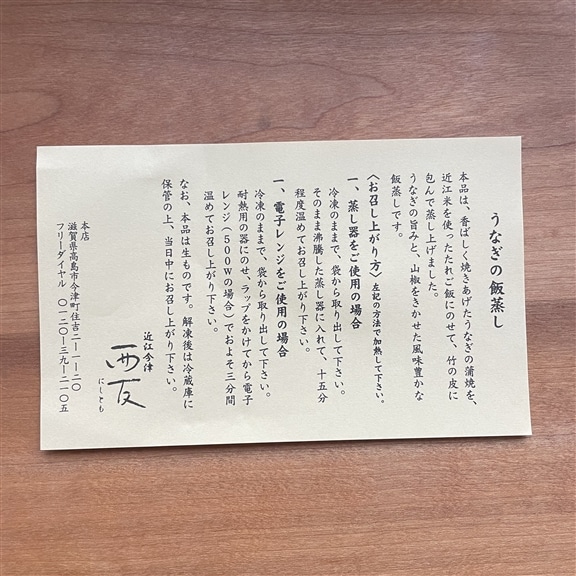 うなぎの飯蒸し
本品は、香ばしく焼きあげたうなぎの蒲焼を、
近江米を使ったたれご飯にのせて、竹の皮に
包んで蒸し上げました。
うなぎの旨みと、山椒をきかせた風味豊かな
飯蒸しです。
〈お召し上がり方〉左記の方法で加熱して下さい。
一、蒸し器をご使用の場合
冷凍のままで、袋から取り出して下さい。
そのまま沸騰した蒸し器に入れて、十五分
程度温めてお召し上がり下さい。
一、電子レンジをご使用の場合
冷凍のままで、袋から取り出して下さい。
耐熱用の器にのせ、ラップをかけてから電子
レンジ（５００Ｗの場合）でおよそ三分間
温めてお召し上がり下さい。
なお、本品は生ものです。解凍後は冷蔵庫に
保管の上、当日中にお召し上がり下さい。
近江今津
西友
にしとも
本店
滋賀県高島市今津町住吉二ー一ー二〇
フリーダイヤル 〇一二〇ー三九ー二一〇五